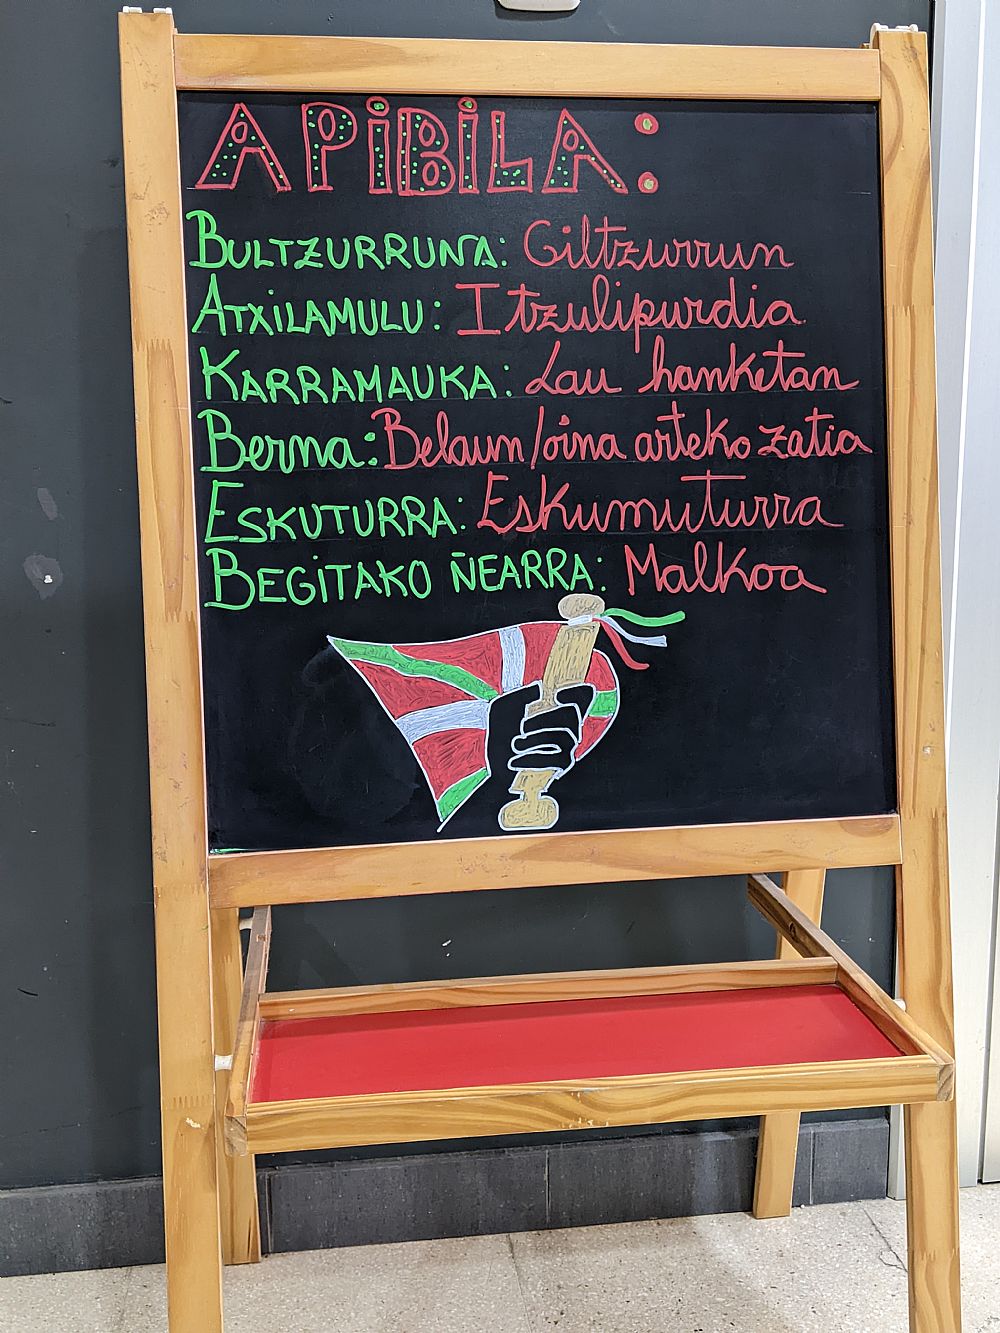 APiBiLA:
BULTZURRUNA: Giltzurrun
ATXILAMULU: Itzulipurdia
KARRAMAUKA: Lau hanketan
Berna: Belaun/oina arteko zatia
ESKUTURRA: Eskumuturra
BEGiTAKO ÑEARRA: Malkoa